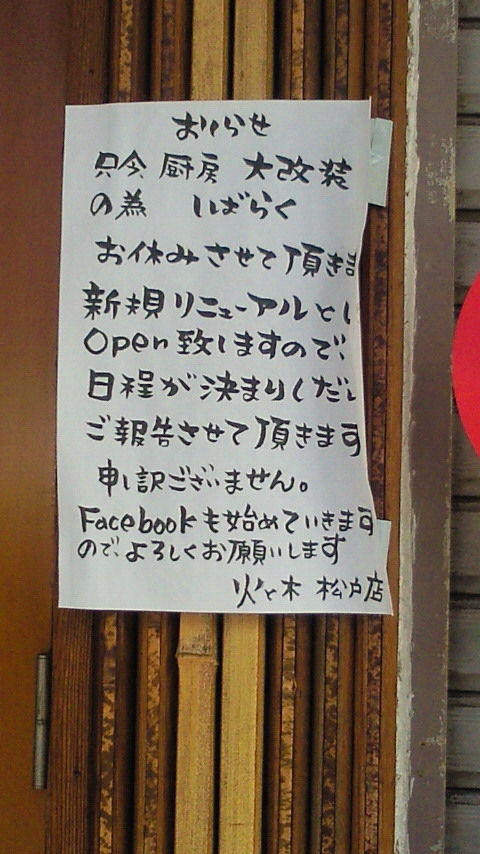 おしらせ
只今 厨房 大改装
の為 しばらく
お休みさせて頂きま
新規リニューアルとし
Open致しますので、
日程が決まりしだい
ご報告させて頂きます
申し訳ございません。
Facebookも始めていきます
ので、よろしくお願いします
火と木 松戸店